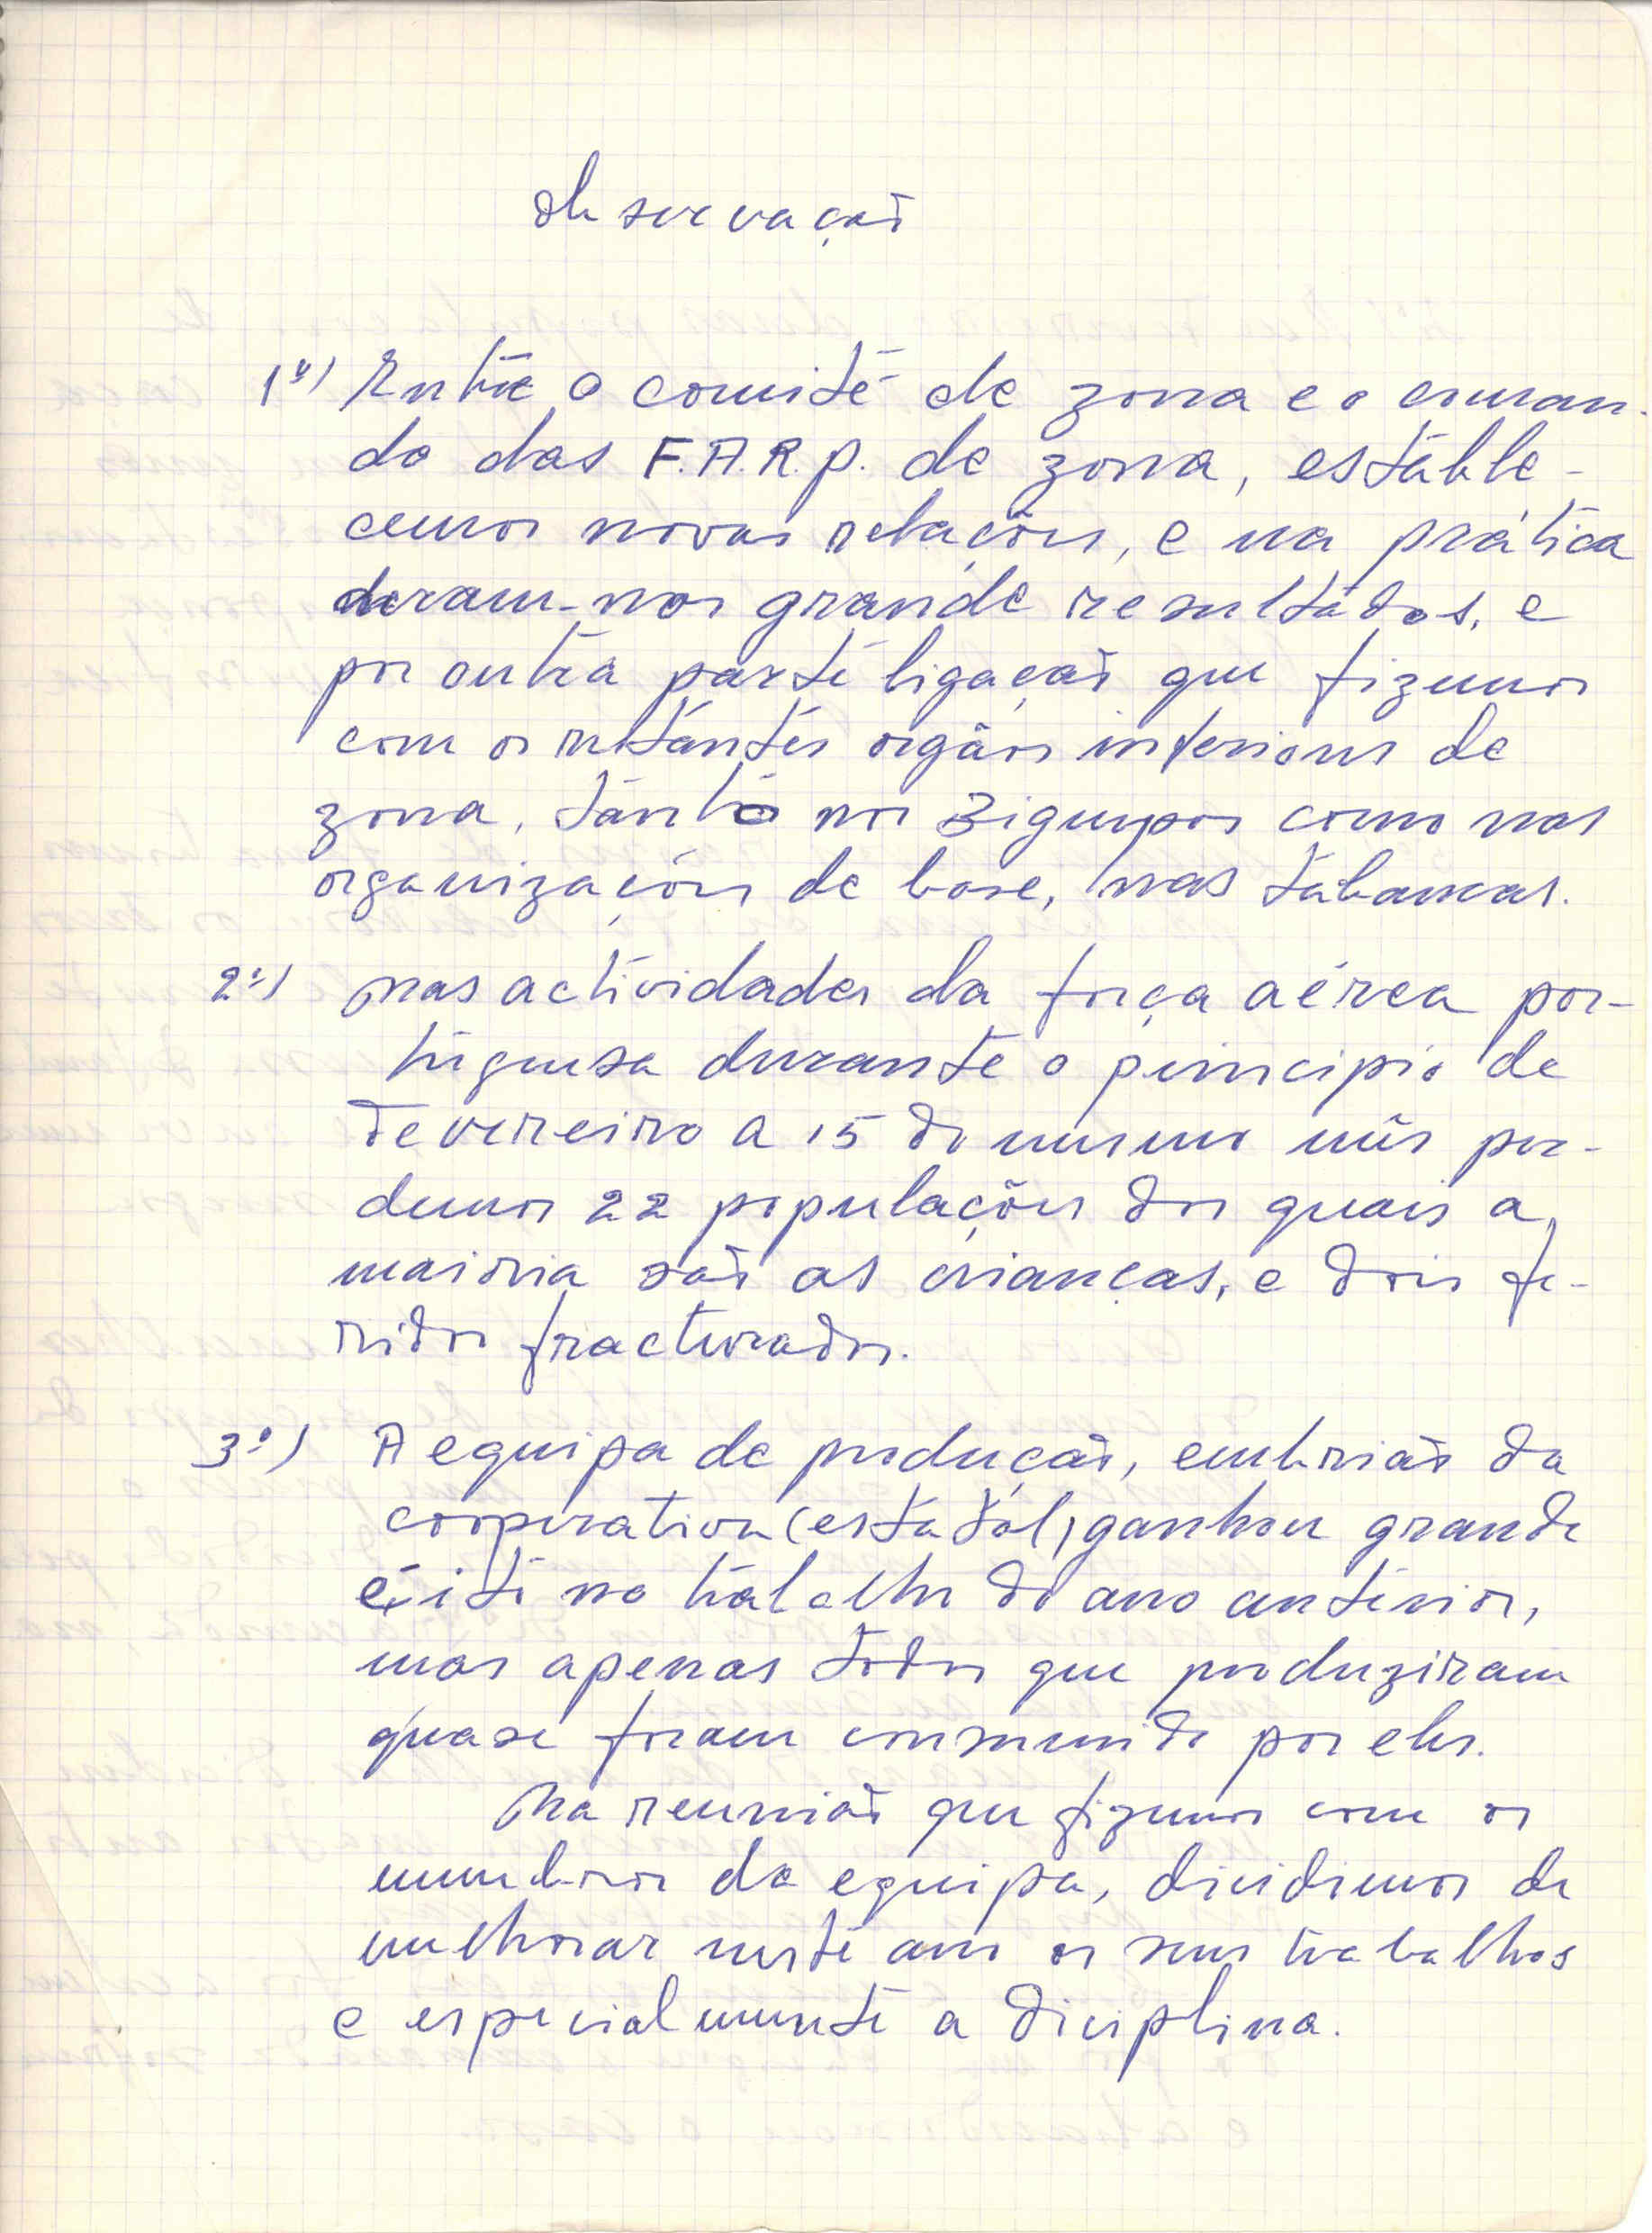 Observação
1º) Entre o comité de zona e o coman-
do das F.A.R.P. de zona, estable-
cemos novas relações, e na prática
deram-nos grande resultados, e
por outra parte ligação que fizemos
com os restantes orgãos inferiores de
zona, tanto nos Bigrupos como nas
organizações de base, nas tabancas.
2º) nas actividades da força aérea por-
tuguesa durante o principio de
Fevereiro a 15 do mesmo mês per-
demos 22 populações dos quais a
maioria são as crianças, e dois fe-
ridos fracturados.
3º) A equipa de produção, embrião da
cooperativa (estatal) ganhou grande
éxito no trabalho do ano anterior,
mas apenas todos que produziram
quase foram consumido por eles.
Na reunião que fizemos com os
membros da equipa, dicidimos de
melhorar neste ano os seus trabalhos
e especialmente a diciplina.